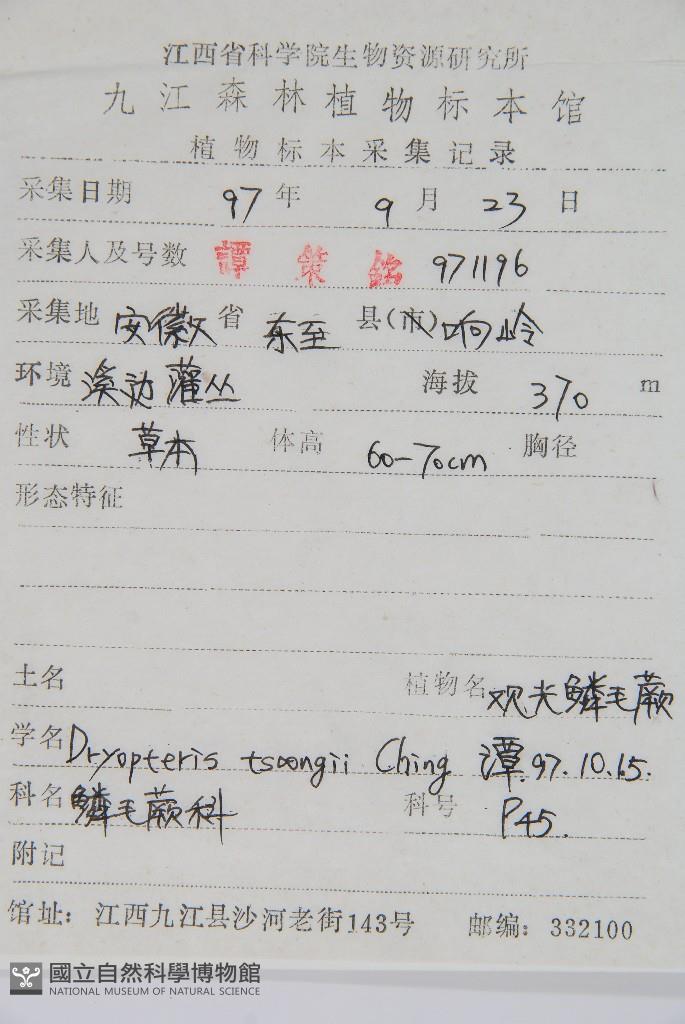 江西省科学院生物资源研究所
九江森林植物标本馆
植物标本采集记录
采集日期 97年 9月 23日
采集人及号数 譚策銘 971196
采集地 安徽省 东至县(市)响岭
环境 溪边灌丛 海拔 370 m
性状 草本 体高 60-70cm 胸径
形态特征
土名 植物名 观光鳞毛蕨
学名 Dryopteris tsoongii Ching 潭.97.10.15.
科名 鳞毛蕨科 科号 P45.
附记
馆址：江西九江县沙河老街143号 邮编：332100
國立自然科學博物館
NATIONAL MUSEUM OF NATURAL SCIENCE